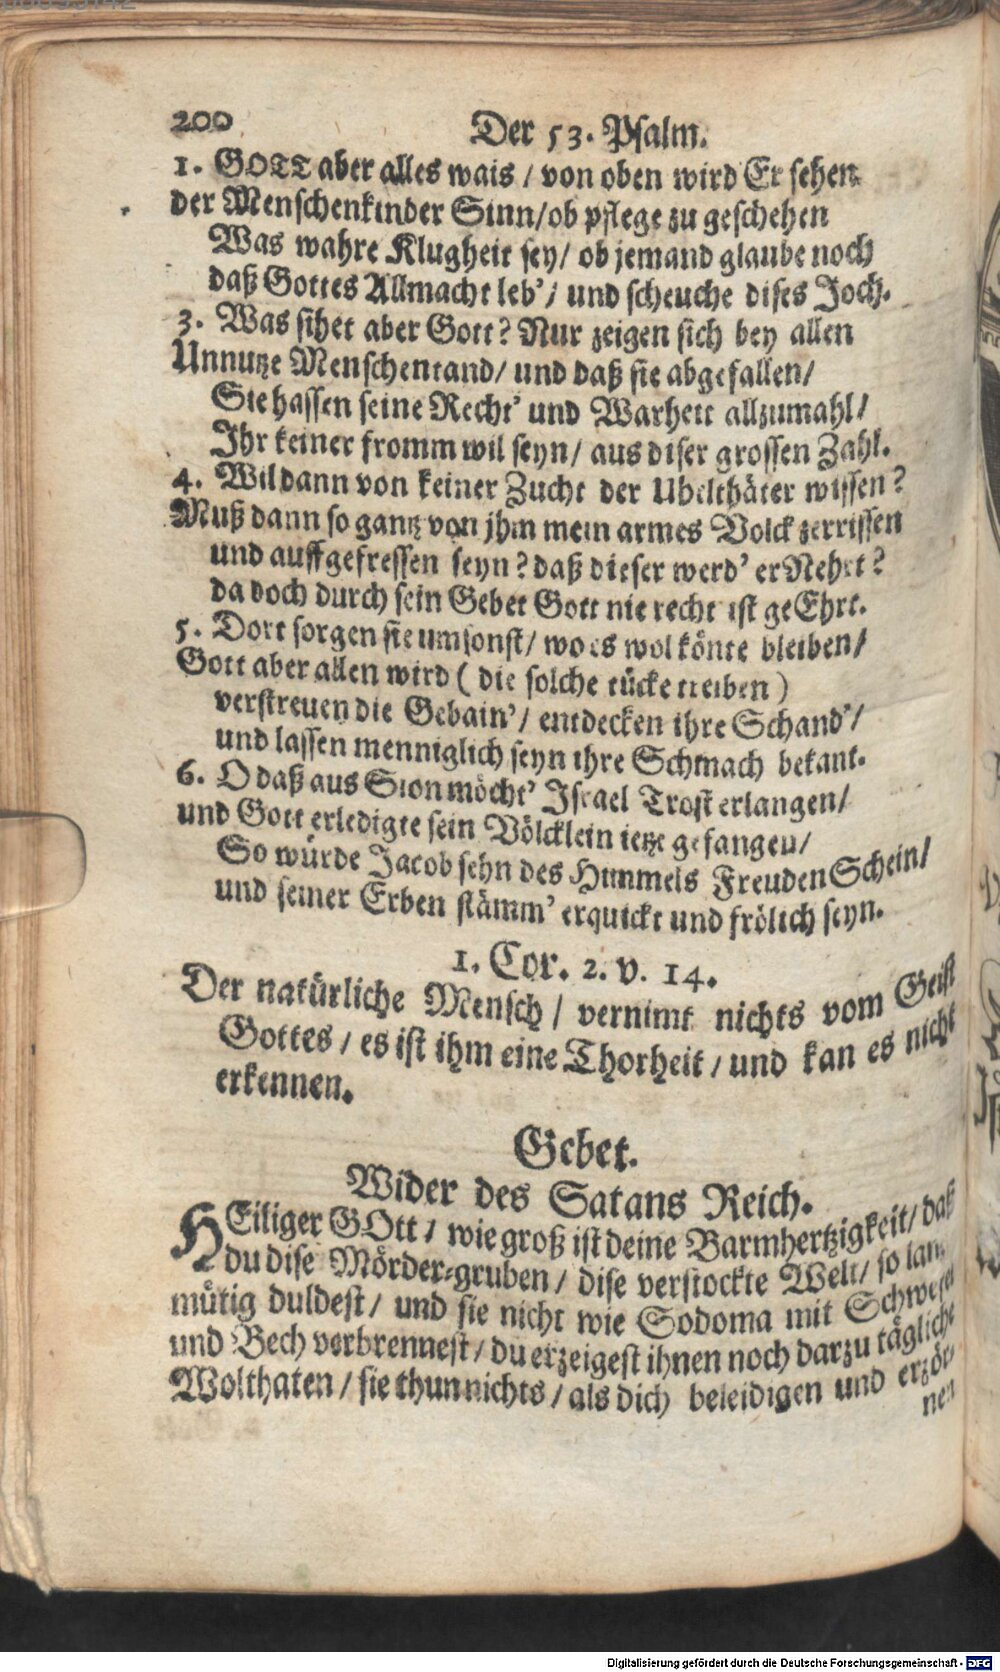 200
Der 53. Psalm.
1. GOTT aber alles wais / von oben wird Er sehen
der Menschenkinder Sinn/ob pflege zu geschehen
Was wahre Klugheit sey/ ob jemand glaube noch
daß Gottes Allmacht leb'/ und scheuche dises Joch.
3. Was sihet aber Gott? Nur zeigen sich bey allen
Unnutze Menschentand/ und daß sie abgefallen/
Sie hassen seine Recht' und Warheit allzumahl/
Ihr keiner fromm wil seyn/ aus diser grossen Zahl.
4. Wil dann von keiner Zucht der Ubelthäter wissen?
Muß dann so gantz von jhm mein armes Volck zerrissen
und auffgefressen seyn? daß dieser werd' erNehrt?
da doch durch sein Gebet Gott nie recht ist geEhrt.
5. Dort sorgen sie umsonst/ wo es wol könte bleiben/
Gott aber allen wird ( die solche tücke treiben )
verstreuen die Gebain'/ entdecken ihre Schand'/
und lassen menniglich seyn ihre Schmach bekant.
6. O daß aus Sion möcht' Israel Trost erlangen/
und Gott erledigte sein Völcklein ietzt gefangen/
So würde Jacob sehn des Himmels FreudenSchein/
und seiner Erben stämm' erquickt und frölich seyn.
1. Cor. 2. v. 14.
Der natürliche Mensch / vernimt nichts vom Geist
Gottes / es ist ihm eine Thorheit / und kan es nicht
erkennen.
Gebet.
Wider des Satans Reich.
HEiliger GOtt / wie groß ist deine Barmhertzigkeit/ daß
du dise Mörder-gruben / dise verstockte Welt/ so lan-
mütig duldest / und sie nicht wie Sodoma mit Schwefel
und Bech verbrennest / du erzeigest ihnen noch darzu tägliche
Wolthaten / sie thun nichts / als dich beleidigen und erzör-
nen
Digitalisierung gefördert durch die Deutsche Forschungsgemeinschaft - DFG